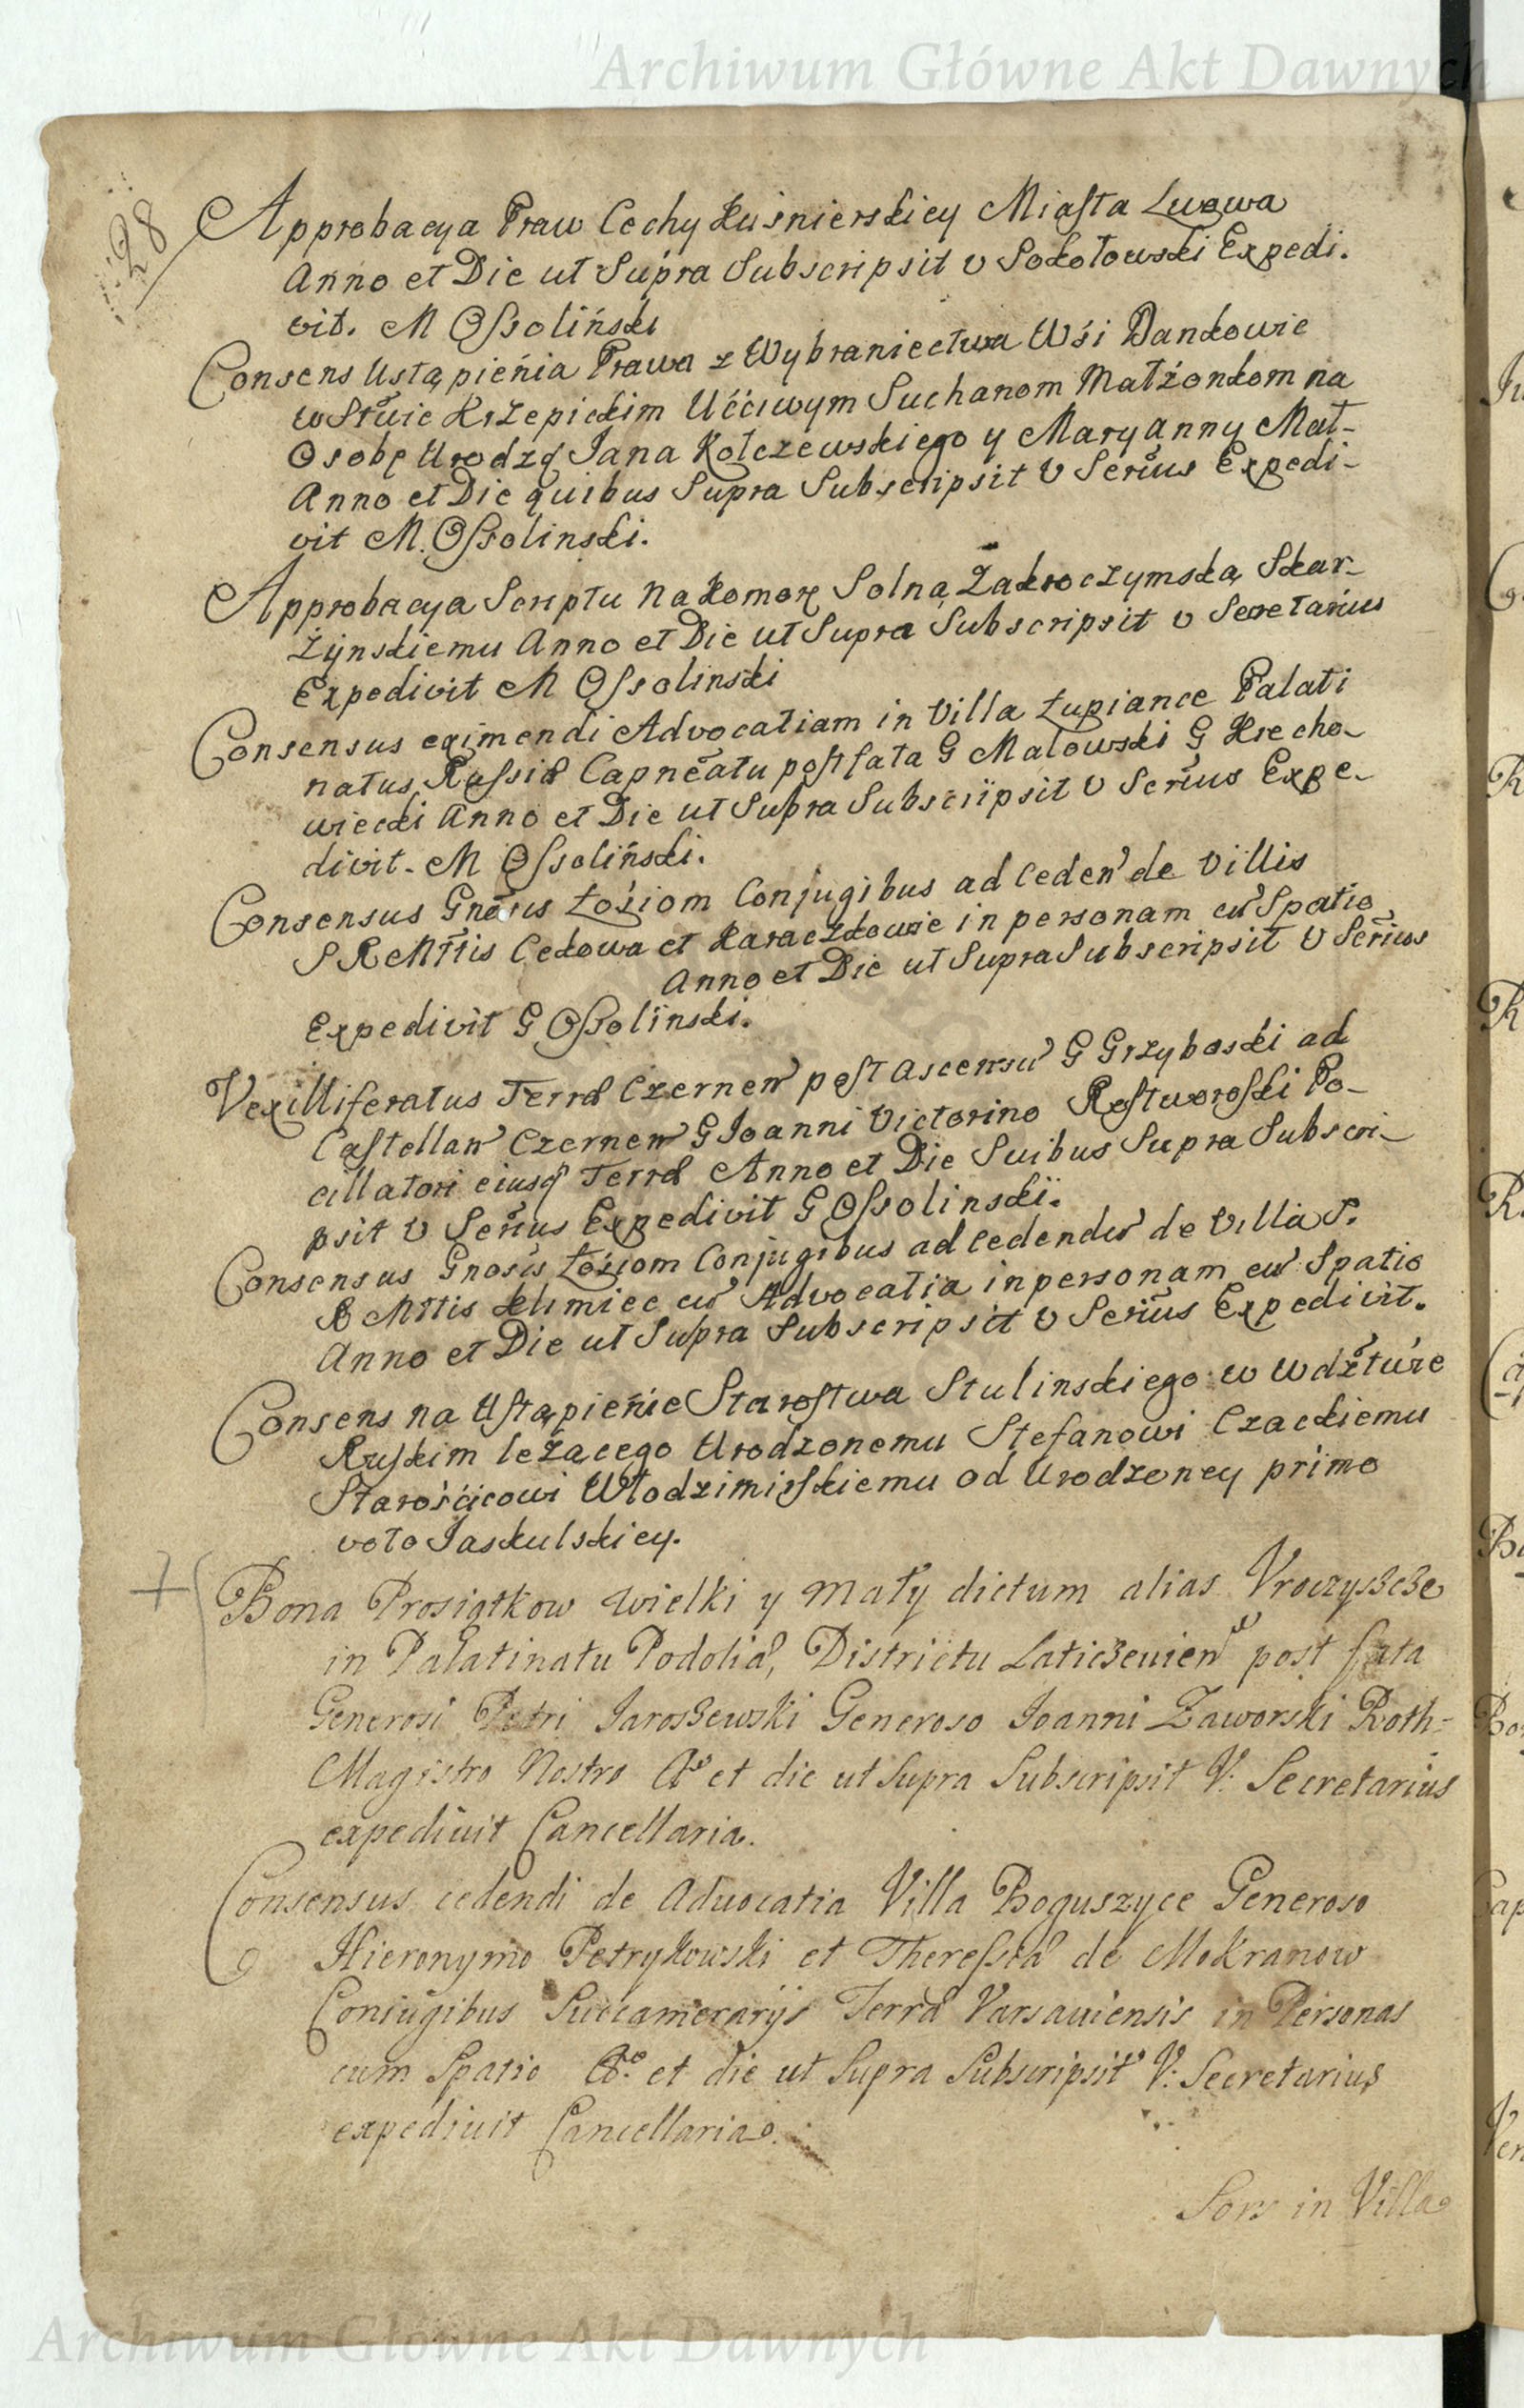 Archiwum Główne Akt Dawnych
28
Approbacya Praw Cechy Kuśnierskiey Miasta Lwowa
Anno et Die ut Supra Subscripsit V Sokołowski Expedi.
vit. M Ossoliński
Consens Ustąpieńia Prawa z Wybraniectwa Wśi Dankowie
w Stwie Krzepickim Uććiwym Suchanom Małżonkom na
Osobę Urodzq Jana Kołczewskiego y Maryanny Mał-
Anno et Die quibus Supra Subscripsit V Serius Expedi-
vit M. Ossolinski.
Approbacya Scriptu na Komorę Solną Zakroczymską Skar-
żynskiemu Anno et Die ut Supra Subscripsit V Secretarius
Expedivit M Ossolinski
Consensus eximendi Advocatiam in Villa Łupiance Palati
natus Russiæ Capneatu post fata G Malowski G Krecho-
wiecki Anno et Die ut Supra Subscripsit V Serius Expe-
divit. M Ossoliński.
Consensus Gnosis Łoziom Conjugibus ad Ceden de Villis
S R Mttis Cekowa et Karaczkowie in personam cu Spatio
Anno et Die ut Supra Subscripsit V Serius
Expedivit G Ossolinski.
Vexilliferatus Terræ Czernen post ascensu G Grzyboski ad
Castellan Czernen G Joanni Victorino Rostworoski Po-
cillatori eiusq Terræ Anno et Die Quibus Supra Subscri-
psit V Serius Expedivit G Ossolinskii.
Consensus Gnosis Łoziom Conjugibus ad Cedendu de Villa S.
R Mttis Klimiec cu Advocatia in personam cu Spatio
Anno et Die ut Supra Subscripsit V Serius Expedivit.
Consens na Ustąpieńie Starostwa Stulinskiego w Wdztwie
Ruskim leżącego Urodzonemu Stefanowi Czackiemu
Starośćicowi Włodzimirskiemu od Urodzoney primo
voto Jaskulskiey.
Bona Prosiatkow wielki y mały dictum alias Vroczyszcze
in Palatinatu Podoliæ, Districtu Laticzeuien post fata
Generosi Petri Jaroszewski Generoso Joanni Zaworski Roth=
Magistro Nostro Ao et die ut Supra Subscripsit V: Secretarius
expediuit Cancellaria.
Consensus cedendi de Aduocatia Villa Boguszyce Generoso
Hieronymo Petrykowski et Theressiæ de Mokranow
Coniugibus Succamerarijs Terræ Varsauiensis in Personas
cum Spatio Ao. et die ut Supra Subscripsit V: Secretarius
expediuit Cancellaria.
Sors in Villa
Archiwum Główne Akt Dawnych